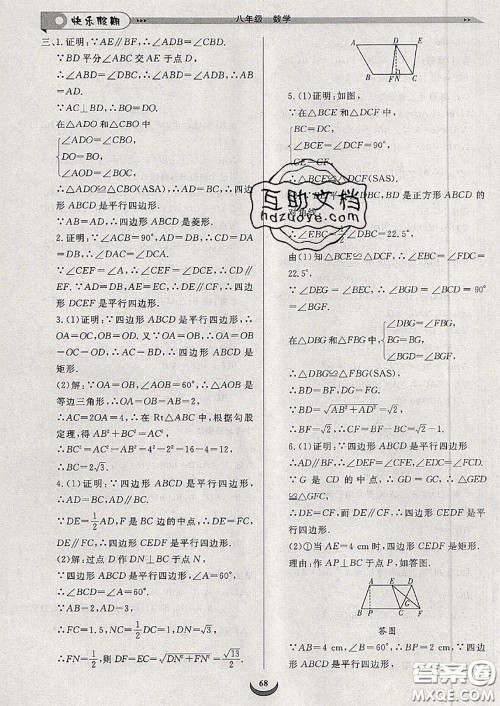 快乐假期
八年级 数学
三、1.证明:∵AE∥BF,∴∠ADB=∠CBD.
∵BD平分∠ABC交AE于点D,
∴∠ABD=∠CBD,∴∠ABD=∠ADB,
∴AB=AD.
∵AC⊥BD,∴BO=DO.
在△ADO和△CBO中
∠ADO=∠CBO,
DO=BO,
∠AOD=∠COB,
∴△ADO≌△CBO(ASA),∴AD=BC,∴四边
形ABCD是平行四边形.
∵AB=AD,∴四边形ABCD是菱形.
2.证明:∵∠ACB=90°,AD=DB,∴CD=DA
=DB,∴∠DAC=∠DCA.
∵∠CEF=∠A,∴∠CEF=∠DCE,∴CD∥
EF.∵AD=DB,AE=EC,∴DE∥BC,∴四边
形DCEF是平行四边形.
3.(1)证明:∵四边形ABCD是平行四边形,∴
OA=OC,OB=OD.又∵OA=OB,∴OA=OB
=OC=OD,∴AC=BD,∴四边形ABCD是
矩形.
(2)解:∵OA=OB,∠AOB=60°,∴△AOB是
等边三角形,∴OA=AB=2,
∴AC=2OA=4,∴在Rt△ABC中,根据勾股
定理,得AB²+BC²=AC²,
∴BC²=AC²-AB²=4²-2²=16-4=12,
∴BC=2√3.
4.(1)证明:∵四边形ABCD是平行四边形,
∴AD=BC,AD∥BC.
∵DE=1/2AD,F是BC边的中点,∴DE=FC,
DE∥FC,∴四边形CEDF是平行四边形.
(2)解:过点D作DN⊥BC于点N,
∵四边形ABCD是平行四边形,∠A=60°,
∴∠BCD=∠A=60°.
∵AB=2,AD=3,
∴FC=1.5,NC=1/2DC=1,DN=√3,
∴FN=1/2,则DF=EC=√(DN²+FN²)=√13/2.
A D E
B F N C
5.(1)证明:如图,
∵在△BCE和△DCF中,
BC=DC,
∠BCE=∠DCF=90°,
CE=CF,
∴△BCE≌△DCF(SAS).
BD是正方形ABCD的
∴∠EBC=1/2∠DBC=22.5°,
由(1)知△BCE≌△DCF,
∵∠DEG=∠BEC,∴∠BGD=∠BCD=90°
=∠BGF.
在△DBG和△FBG中,
∠DBG=∠FBG,
BG=BG,
∠BGD=∠BGF,
∴△DBG≌△FBG(SAS),
∴BD=BF,DG=FG.
∵BD=√(AB²+AD²)=√2,
∴BF=√2,∴CF=BF-BC=√2-1.
6.(1)证明:∵四边形ABCD是平行四边形
∴AD∥BF,∴∠DEF=∠CFE,∠EDC=∠FCD.
∵G是CD的中点,∴GD=GC,∴△GED
≌△GFC,
∴DE=CF,而DE∥CF,∴四边形CEDF是平
行四边形.
(2)①当AE=4 cm时,四边形CEDF是矩形.
理由:作AP⊥BC于点P,如答图.
A E D
G
B P C F
答图
∵AB=4 cm,∠B=60°,∴BP=2 cm;∵四
边形ABCD是平行四边形,
68
互助文档
hdzuzd.com
答案圈
MXQE.COM